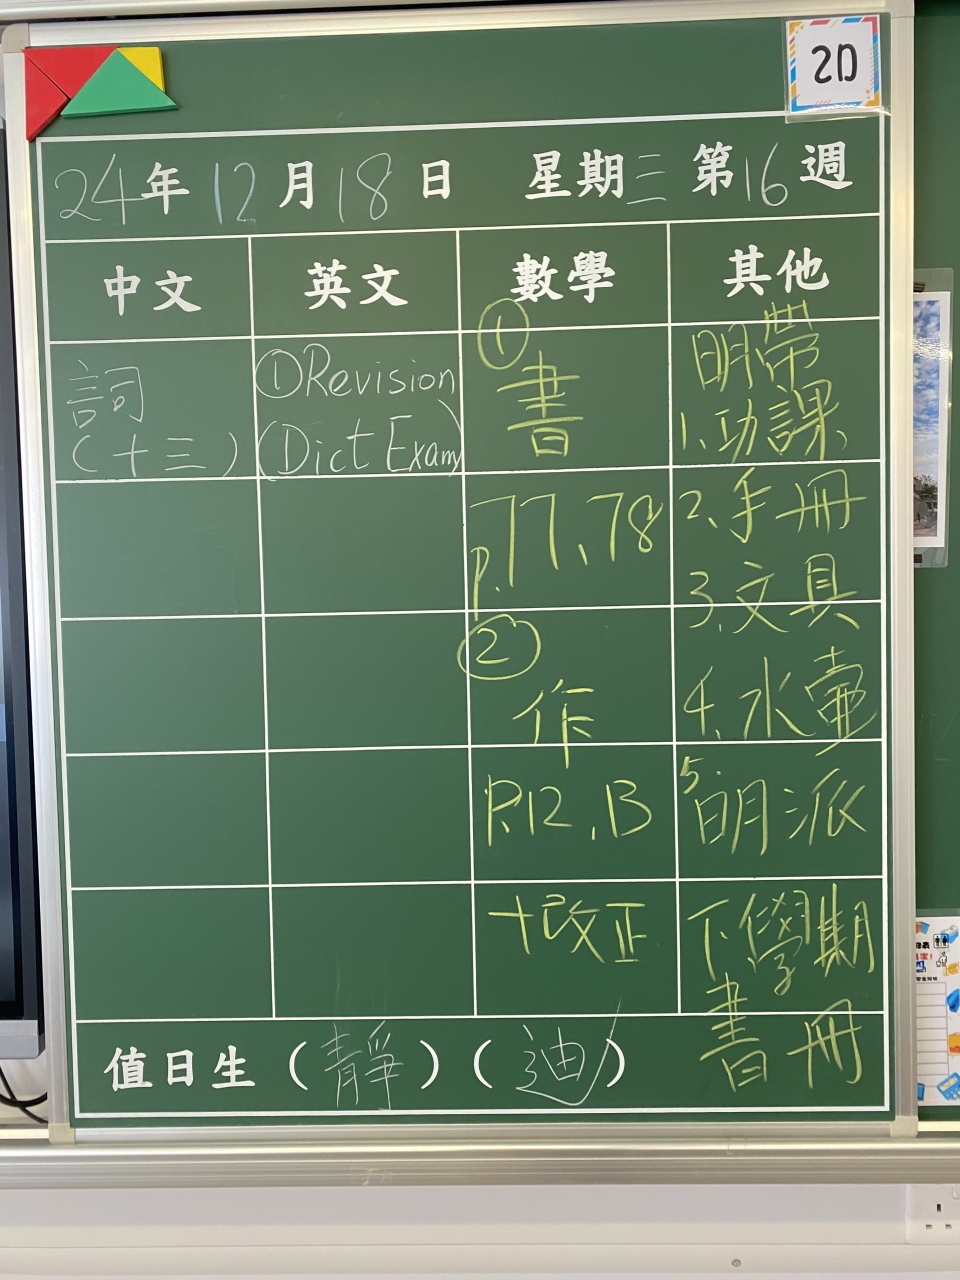 2D
24年12月18日 星期三 第16週
中文 英文 數學 其他
詞
(十三)
①Revision
(Dict Exam)
①
書
P.77、78
②
作
P.12、13
+改正
明帶
1、功課
2、手冊
3、文具
4、水壺
5.明派
下學期
書冊
值日生(靜)(迪)